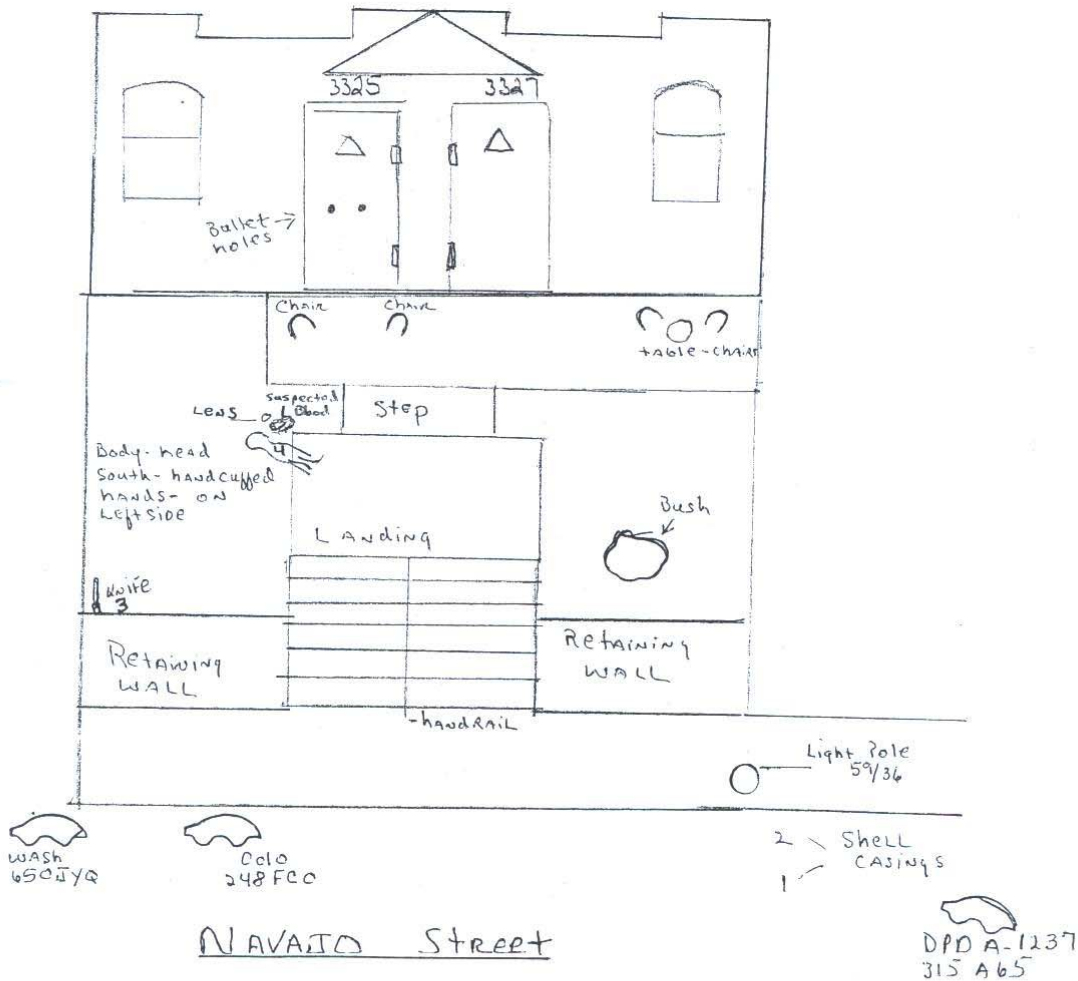 3325 3327
Bullet →
holes
Chair Chair
table-chairs
Lens
suspected
Blood
Step
4
Body-head
South-handcuffed
hands- on
Left side
Landing
Bush
Knife
3
Retaining
Wall
Retaining
Wall
-handrail
Light Pole
59/36
2 Shell
1 Casings
Wash
650JYQ
Colo
248FCO
Navajo Street
DPD A-1237
315 A65